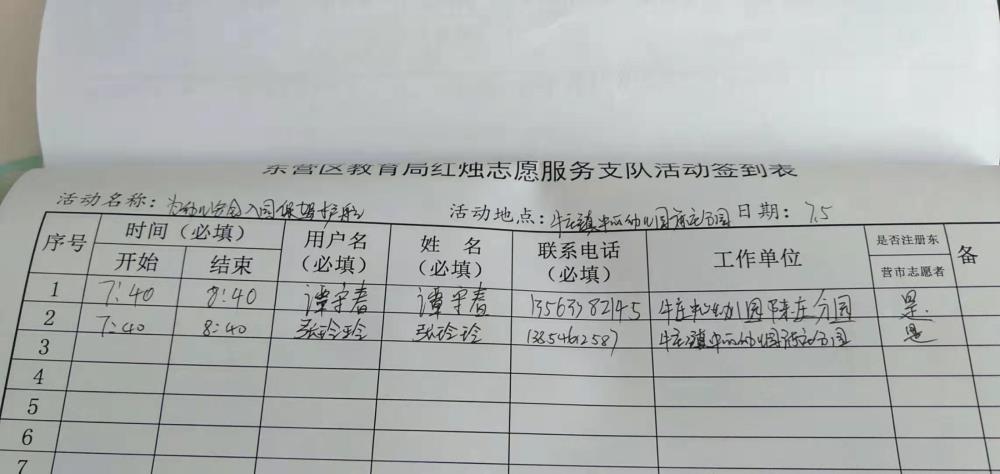 东营区教育局红烛志愿服务支队活动签到表
活动名称：为幼儿安全入园保驾护航 活动地点：牛庄镇中心幼儿园陈庄分园 日期：7.5
序号 时间（必填） 用户名（必填） 姓 名（必填） 联系电话（必填） 工作单位 是否注册东营市志愿者 备
开始 结束
1 7:40 8:40 谭守春 谭守春 13563782145 牛庄中心幼儿园陈庄分园 是.
2 7:40 8:40 张玲玲 张玲玲 13354612587 牛庄镇中心幼儿园陈庄分园 是
3
4
5
6
7